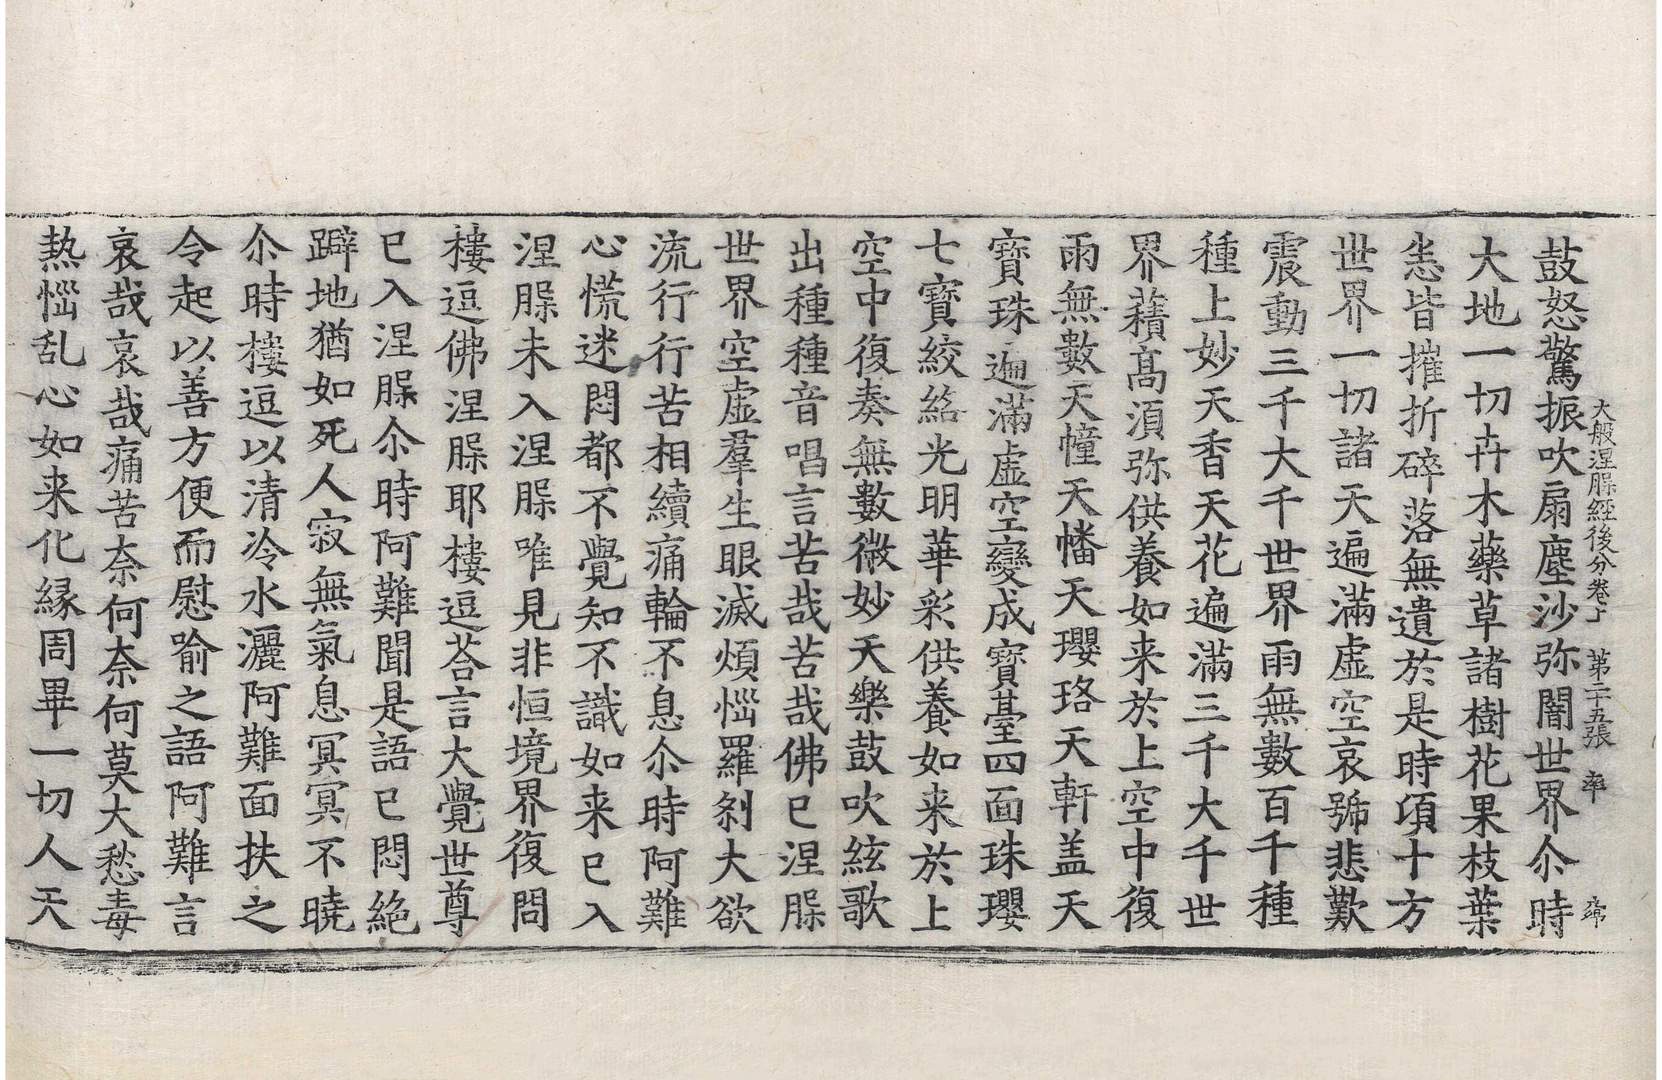 大般涅槃經後分卷上 第二十五張 率
鼓怒驚振吹扇塵沙弥闇世界尒時
大地一切卉木藥草諸樹花果枝葉
悉皆摧折碎落無遺於是時頃十方
世界一切諸天遍滿虛空哀號悲歎
震動三千大千世界雨無數百千種
種上妙天香天花遍滿三千大千世
界積高須弥供養如来於上空中復
雨無數天幢天幡天瓔珞天軒盖天
寶珠遍滿虛空變成寶臺四面珠瓔
七寶絞絡光明華彩供養如来於上
空中復奏無數微妙天樂鼓吹絃歌
出種種音唱言苦哉苦哉佛已涅槃
世界空虛羣生眼滅煩惱羅剎大欲
流行行苦相續痛輪不息尒時阿難
心慌迷悶都不覺知不識如来已入
涅槃未入涅槃唯見非恒境界復問
樓逗佛涅槃耶樓逗荅言大覺世尊
已入涅槃尒時阿難聞是語已悶絕
躃地猶如死人寂無氣息冥冥不曉
尒時樓逗以清冷水灑阿難面扶之
令起以善方便而慰喻之語阿難言
哀哉哀哉痛苦奈何奈何莫大愁毒
熱惱乱心如来化緣周畢一切人天